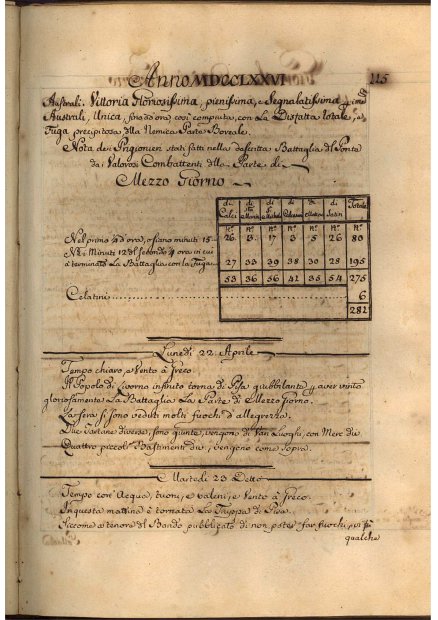 Anno MDCCLXXVI 115
Australi. Vittoria Gloriosissima, pienissima, e Segnalatissima
Australi, Unica, sin ad ora così compiuta, con La Disfatta totale, e
Fuga precipitosa della Nemica Parte Boreale.
Nota de Prigionieri stati fatti nella descritta Battaglia del Ponte
da Valorosi Combattenti della Parte di
Mezzo Giorno
di Calci di S. Maria di S. Michele di di di Totale
N.° N.° N.° N.° N.° N.° N.°
Nel primo ¼ d'ora, o siano minuti 15 26 3 17 3 5 26 80
Ne Minuti 12 del secondo ¼ ora in cui
è terminata La Battaglia con la Fuga 27 33 39 38 30 28 195
53 36 56 41 35 54 275
Celatini 6
281
Lunedì 22 Aprile
Tempo chiaro, e Vento à Greco.
Il Popolo di Livorno infinito torna di Pisa giubbilante p aver vinto
gloriosamente La Battaglia La Parte di Mezzo Giorno.
La sera si sono veduti molti fuochi d'allegrezza.
Due Tartane diverse, sono giunte, vengono di Vari Luoghi, con Merci div
Quattro piccoli Bastimenti di, vengono come sopra.
Martedì 23 Detto
Tempo con Acqua, tuoni, e baleni, e Vento à Greco.
In questa mattina è tornata La Truppa di Pisa.
Siccome a tenore del Bando pubblicato di non poter far fuochi,
qualche